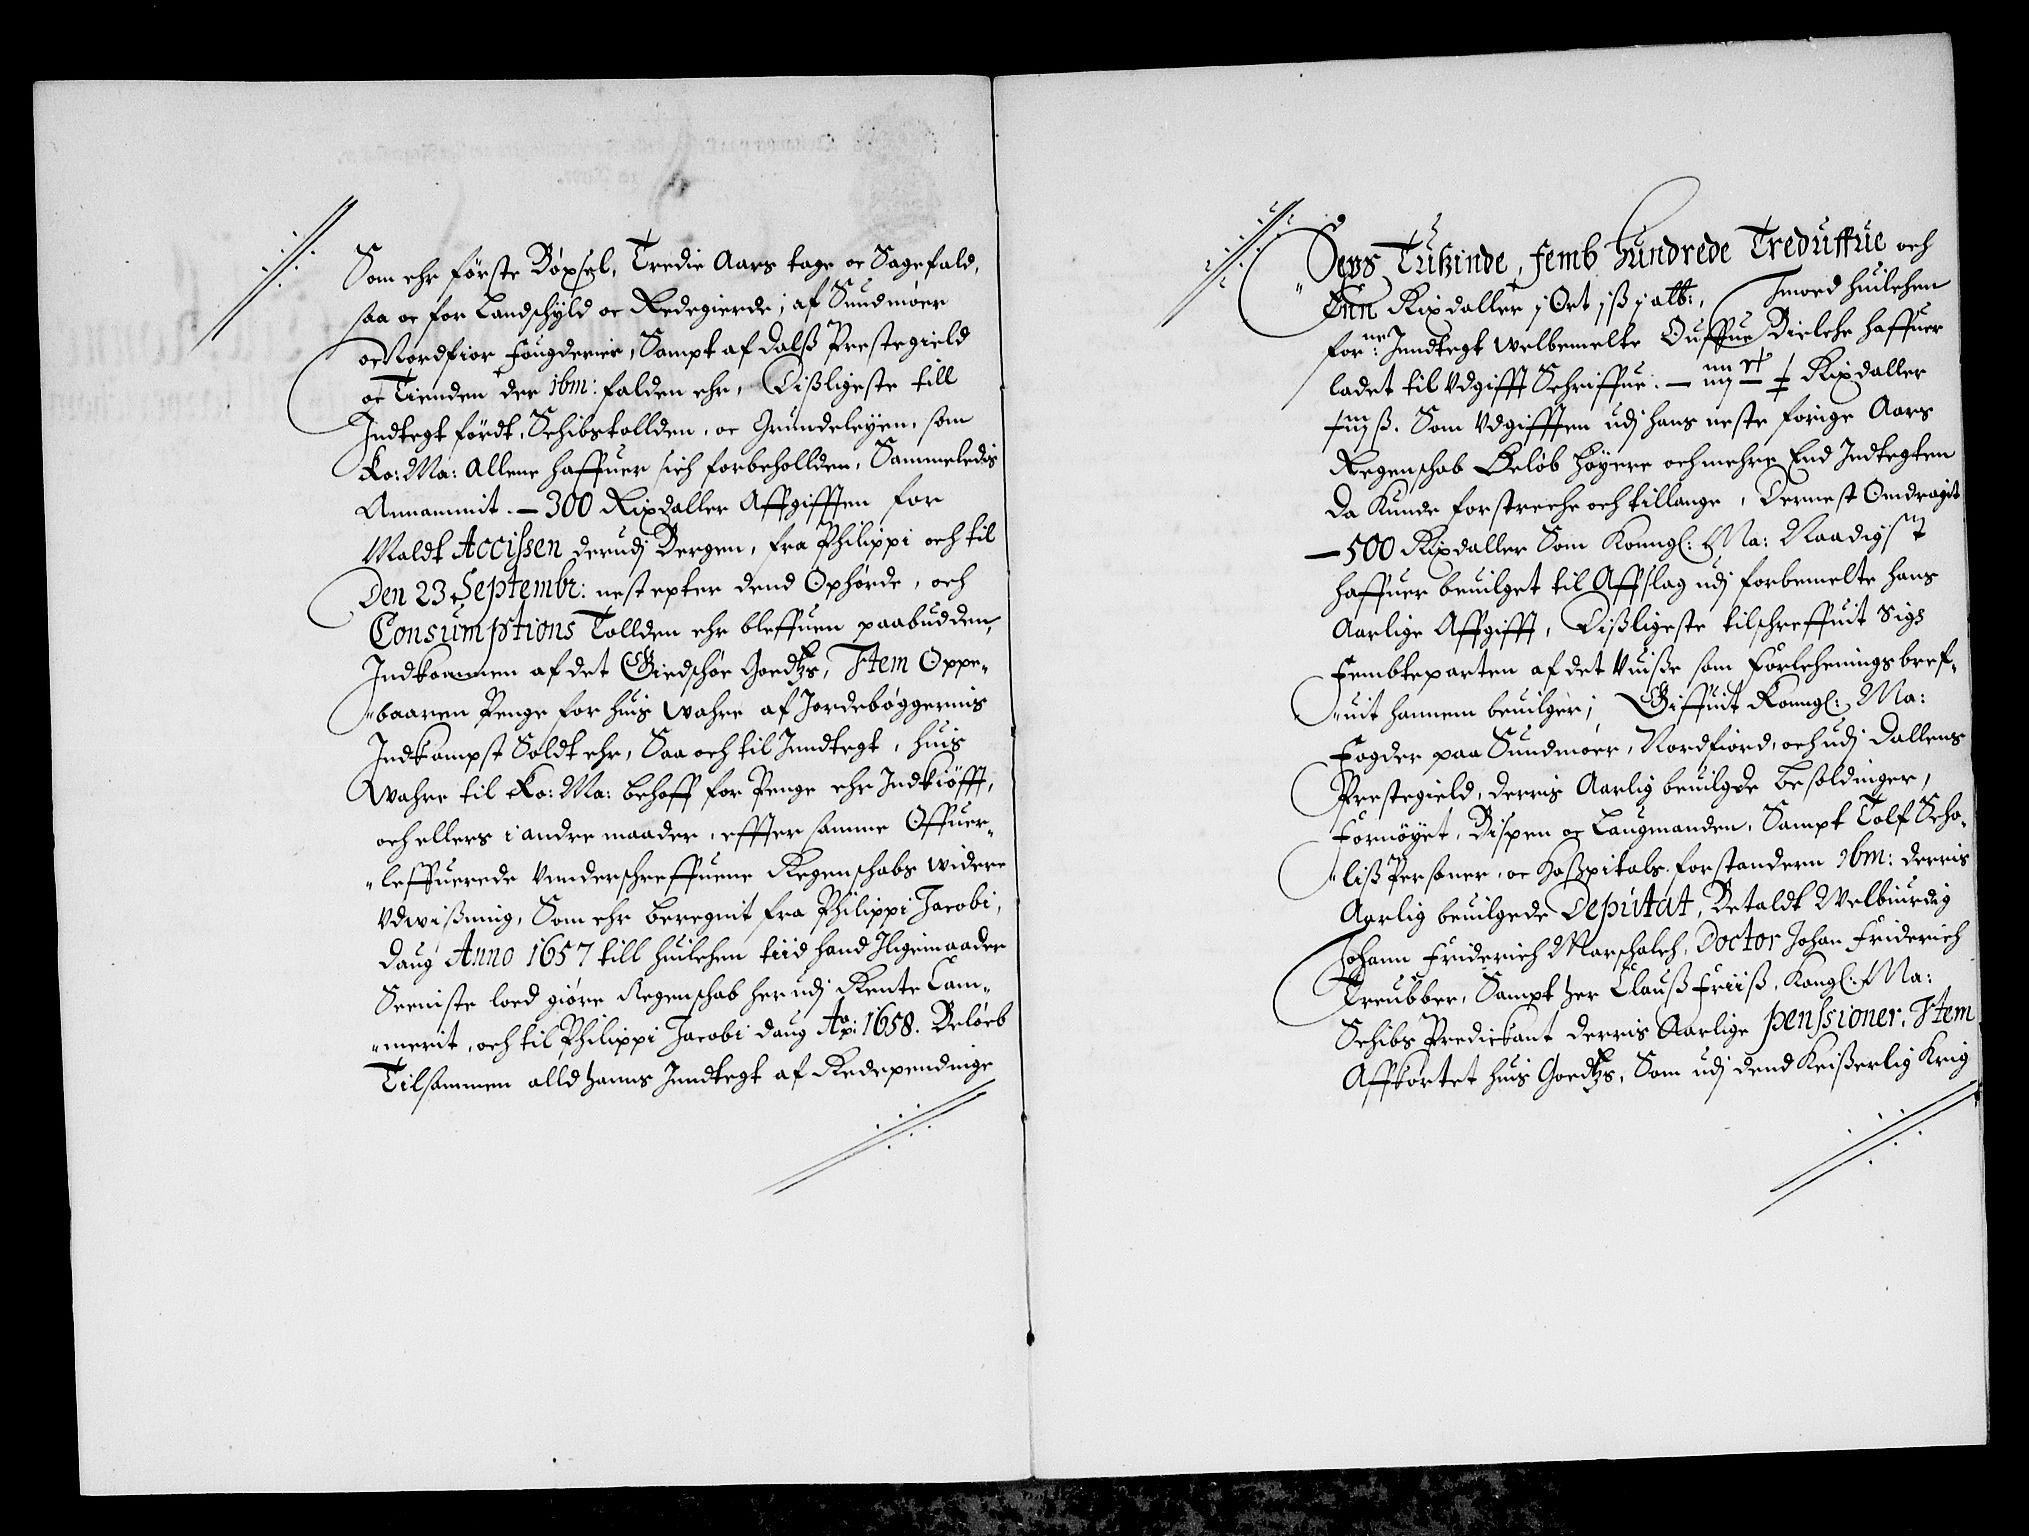 Som ehr første Bøxsel, Tredie Aars tage oc Sagefald,
saa oc for Landschyld oc Redegierde; af Sundmøer
oc Nordfior Fougderier, Sampt af Dalß Prestegield
oc Tienden der ibm: falden ehr, Dißligeste till
Indtegt førdt, Schibstollden, oc Grundeleyen, som
Ko: Ma: Allene haffuer sich forbehollden, Sammeledis
Annammit. — 300 Rixdaller Affgifften for
Maldt Accissen derudj Bergen, fra Philippi och til
Den 23 Septembr: nest epter dend Ophørde, och
Consumptions Tollden ehr bleffuen paabudden,
Indkommen af det Giedschøe Goedtzs, Item Oppe-
"baaren Penge for huis Wahre af Jordebøggernis
Indkompst Soldt ehr, Saa och til Inndtegt, huis
Wahre til Ko: Ma: behoff for Penge ehr Indkiøfft,
och ellers i andre maader, effter samme Offuer-
"leffuerede Vnderschreffuene Regenschabs widere
Vdwißning, Som ehr beregnit fra Philippi Jacobi,
Daug Anno 1657 till huilchen tiid hand Jligemaader
Seeniste loed giøre Regenschab her udj Rente Cam-
"merit, och til Philippi Jacobi daug Ao: 1658. Beløeb
Tilsammen alld hanns Inndtegt af Redependinge
Sexs Tußinde, femb hundrede Treduffue och
Enn Rixdaller j Ort j ß j alb:, Imoed huilchen
forne: Inndtegt welbemelte Ouffue Bielche haffuer
ladet til Vdgifft Schriffue. — Rixdaller
ß. Som Vdgifften udj hans neste forige Aars
Regenschab Beløb høyere och mehre End Indtegten
da Kunde forstreche och tillange, Dernest Omdragit
— 500 Rixdaller Som Konngl: Ma: Naadigst
haffuer beuilget til Affslag udj forbemelte hans
Aarlige Affgifft, Dißligeste tilschreffuit Sigs
Fembteparten af det Vuiße som Forlehningsbref-
"uit hannem beuilger; Giffuit Konngl: Ma:
Fogder paa Sundmøer, Nordfiord, och udj Dallens
Prestegield, derris Aarlig beuilgde besoldinger,
Fornøyet, Bispen oc Laugmanden, Sampt Tolf Scho-
"liß Personer, oc Hoßpitals forstandern ibm: derris
Aarlig beuilgede Deputat, Betaldt Welbiurdig
Johann Friderich Marschalch, Doctor Johan Friderich
Treubber, Sampt her Clauß Friiß, Kongl: Ma:
Schibs Predickant derris Aarlige penssioner, Item
Affkortet huis Goedtzs, Som udj dend Keißerlig Krig